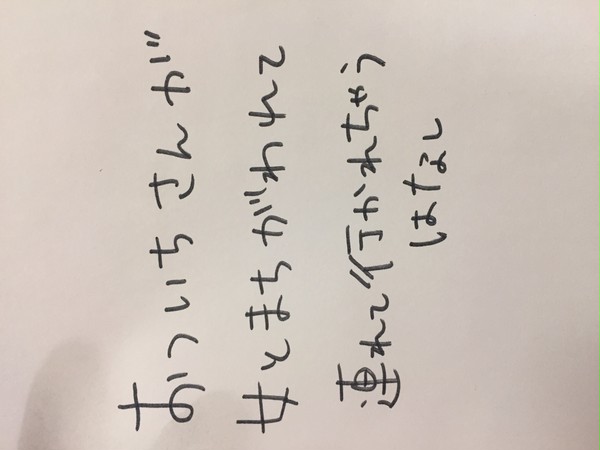 おついちさんが
女とまちがわれて
連れて行かれちゃう
はなし